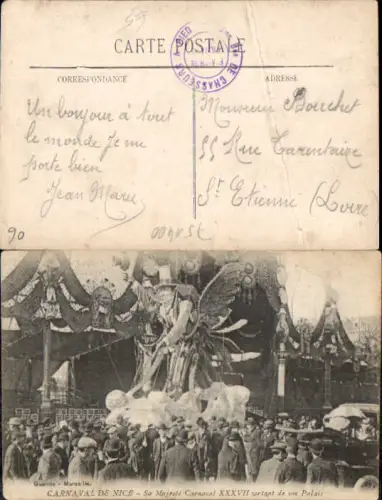 CARTE POSTALE
CORRESPONDANCE
ADRESSE
A PIED
DE CHASSEURS
Un bonjour à tout
le monde Je me
porte bien
Jean Marie
Monsieur Bouchet
55 Rue Tarentaize
St Etienne (Loire)
90
Guende - Marseille
CARNAVAL DE NICE - Sa Majesté Carnaval XXXVII sortant de son Palais